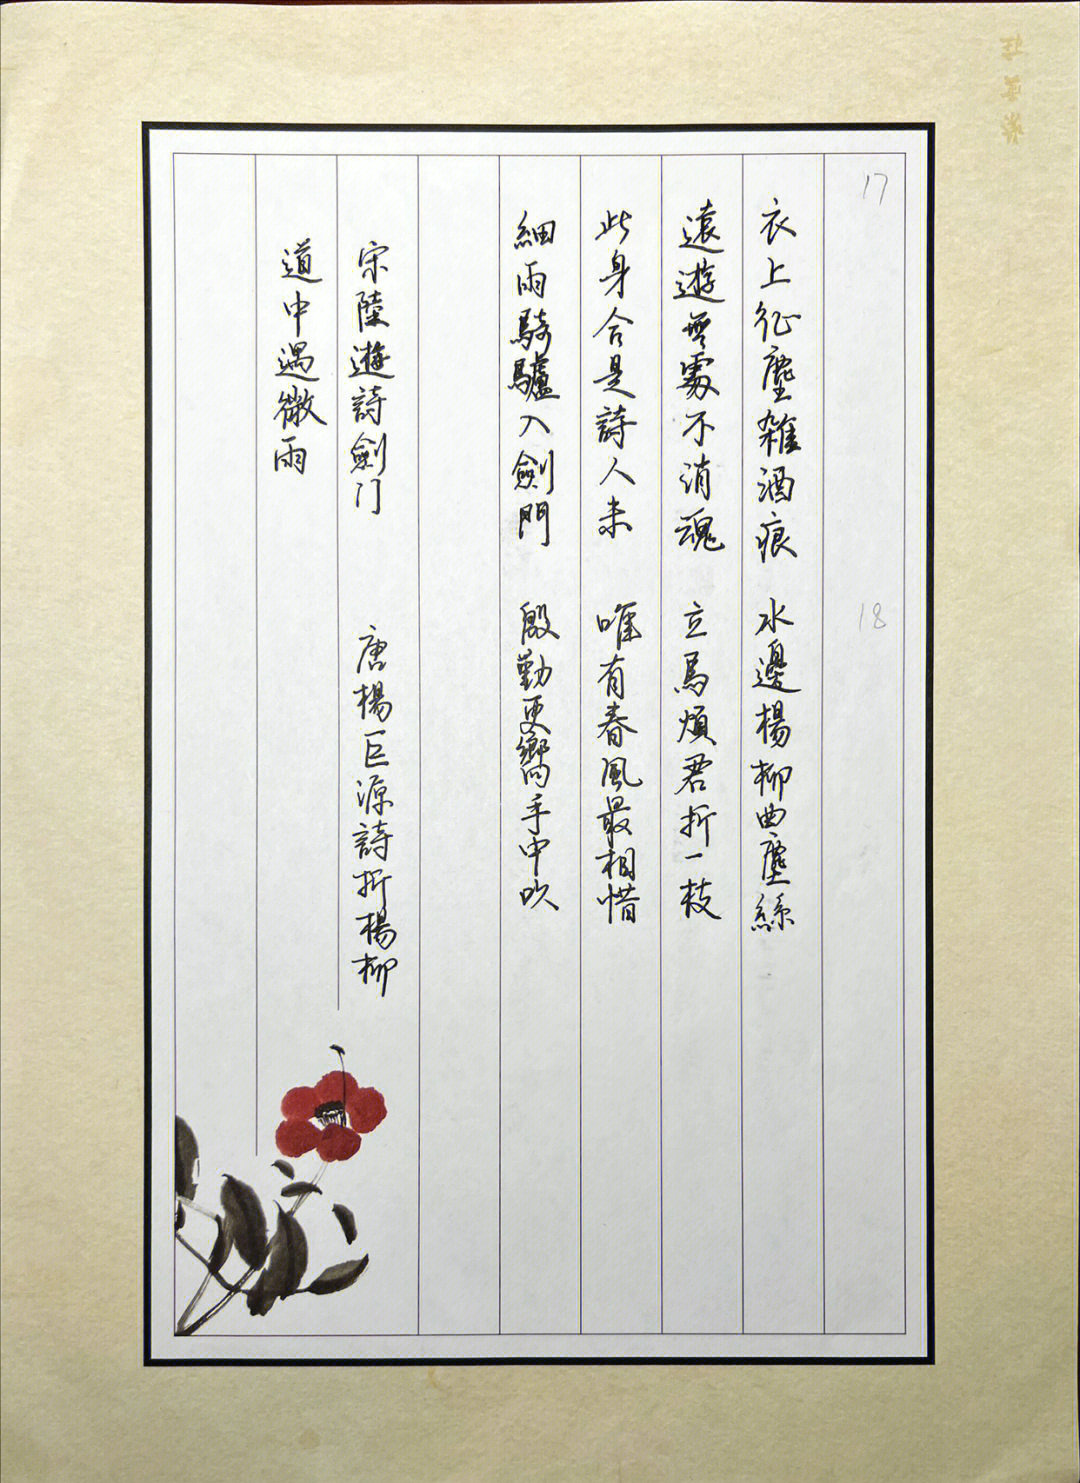 17
衣上征塵雜酒痕
遠遊無處不消魂
此身合是詩人未
細雨騎驢入劍門
宋陸遊詩劍门
道中遇微雨
18
水邊楊柳曲塵絲
立馬煩君折一枝
唯有春風最相惜
殷勤更嚮手中吹
唐楊巨源詩折楊柳